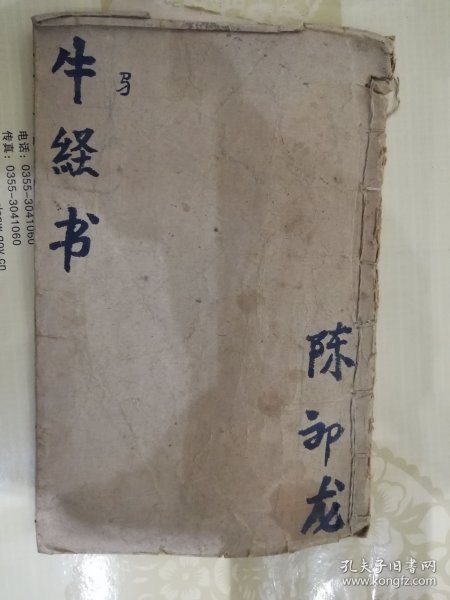 牛经书
马
陈卯龙
电话：0355-3041060
传真：0355-3041060
.gov.cn
孔夫子旧书网
www.kongfz.com